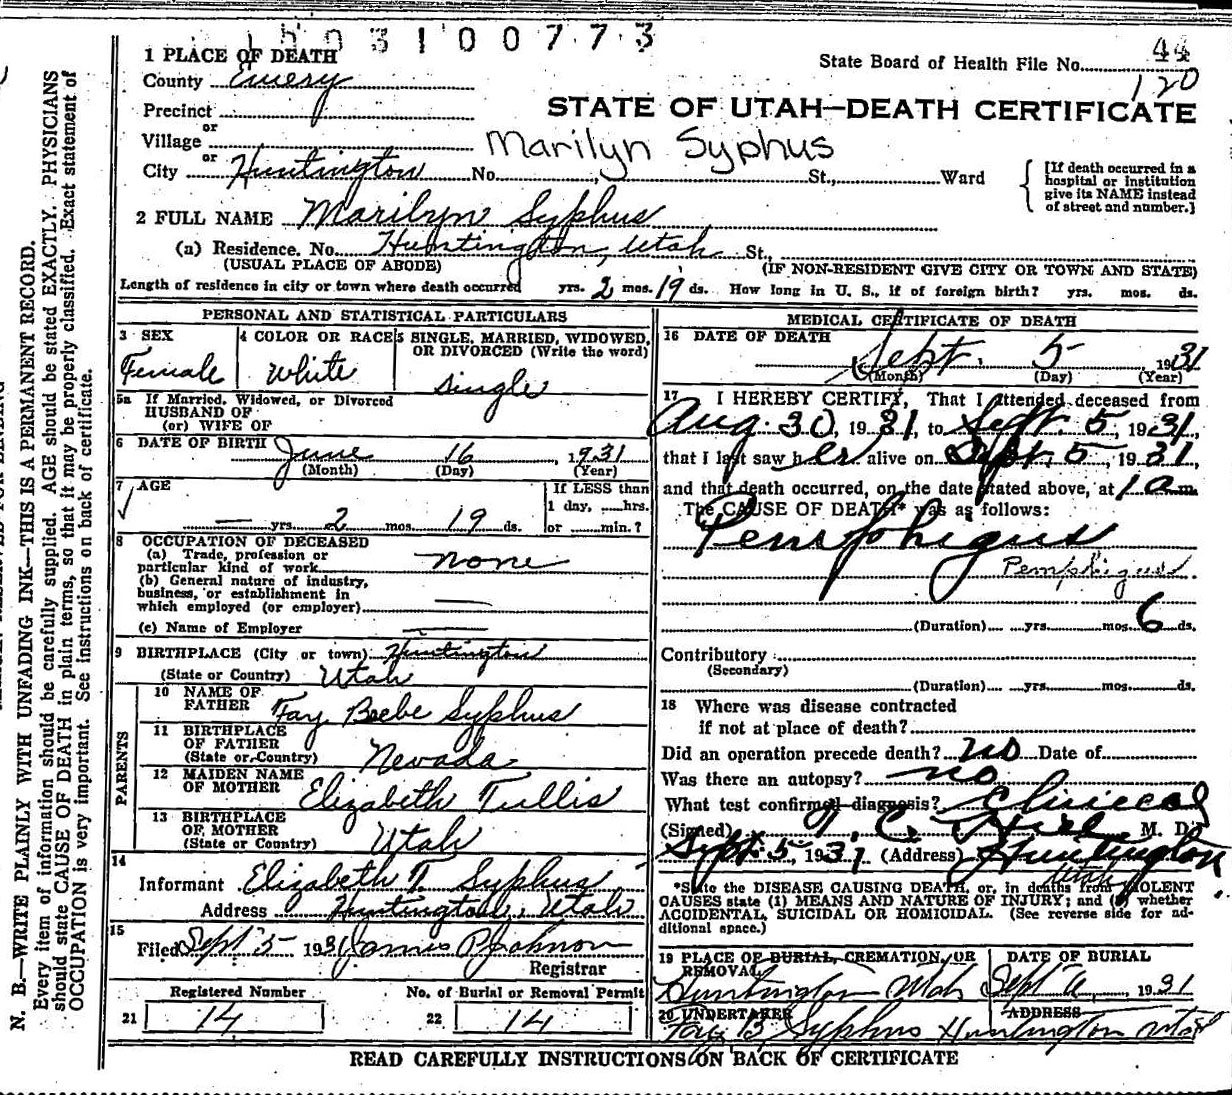 1503100773
44
State Board of Health File No. 120
1 PLACE OF DEATH
County Emery
STATE OF UTAH—DEATH CERTIFICATE
Precinct
or
Village
Marilyn Syphus
or
City Huntington No. St., Ward
[If death occurred in a
hospital or institution
give its NAME instead
of street and number.]
2 FULL NAME Marilyn Syphus
(a) Residence. No. Huntington, Utah St.,
(USUAL PLACE OF ABODE) (IF NON-RESIDENT GIVE CITY OR TOWN AND STATE)
Length of residence in city or town where death occurred yrs. 2 mos. 19 ds. How long in U. S., if of foreign birth? yrs. mos. ds.
PERSONAL AND STATISTICAL PARTICULARS
3 SEX
Female
4 COLOR OR RACE
White
5 SINGLE, MARRIED, WIDOWED,
OR DIVORCED (Write the word)
Single
5a If Married, Widowed, or Divorced
HUSBAND OF
(or) WIFE OF
6 DATE OF BIRTH June 16, 1931
(Month) (Day) (Year)
7 AGE
— yrs. 2 mos. 19 ds.
If LESS than
1 day, ....hrs.
or ....min.?
8 OCCUPATION OF DECEASED
(a) Trade, profession or
particular kind of work none
(b) General nature of industry,
business, or establishment in
which employed (or employer) —
(c) Name of Employer —
9 BIRTHPLACE (City or town) Huntington
(State or Country) Utah
PARENTS
10 NAME OF
FATHER Fay Beebe Syphus
11 BIRTHPLACE
OF FATHER
(State or Country) Nevada
12 MAIDEN NAME
OF MOTHER Elizabeth Tullis
13 BIRTHPLACE
OF MOTHER
(State or Country) Utah
14
Informant Elizabeth T. Syphus
Address Huntington, Utah
15
Filed Sept 5 1931 James P Johnson
Registrar
Registered Number
21 14
No. of Burial or Removal Permit
22 14
MEDICAL CERTIFICATE OF DEATH
16 DATE OF DEATH
Sept. 5 1931
(Month) (Day) (Year)
17 I HEREBY CERTIFY, That I attended deceased from
Aug. 30, 1931, to Sept. 5, 1931,
that I last saw her alive on Sept. 5, 1931,
and that death occurred, on the date stated above, at 1 a m.
The CAUSE OF DEATH* was as follows:
Pemphigus
Pemphigus
(Duration) yrs. mos. 6 ds.
Contributory
(Secondary)
(Duration) yrs. mos. ds.
18 Where was disease contracted
if not at place of death?
Did an operation precede death? no Date of
Was there an autopsy? no
What test confirmed diagnosis? Clinical
(Signed) T. C. Hill M. D.
Sept. 5, 1931 (Address) Huntington
Utah
*State the DISEASE CAUSING DEATH, or, in deaths from VIOLENT
CAUSES state (1) MEANS AND NATURE OF INJURY; and (2) whether
ACCIDENTAL, SUICIDAL OR HOMICIDAL. (See reverse side for ad-
ditional space.)
19 PLACE OF BURIAL, CREMATION, OR
REMOVAL
Huntington Utah
DATE OF BURIAL
Sept 6, 1931
20 UNDERTAKER
Fay B. Syphus
ADDRESS
Huntington Utah
READ CAREFULLY INSTRUCTIONS ON BACK OF CERTIFICATE
N. B.—WRITE PLAINLY WITH UNFADING INK—THIS IS A PERMANENT RECORD.
Every item of information should be carefully supplied. AGE should be stated EXACTLY. PHYSICIANS
should state CAUSE OF DEATH in plain terms, so that it may be properly classified. Exact statement of
OCCUPATION is very important. See instructions on back of certificate.